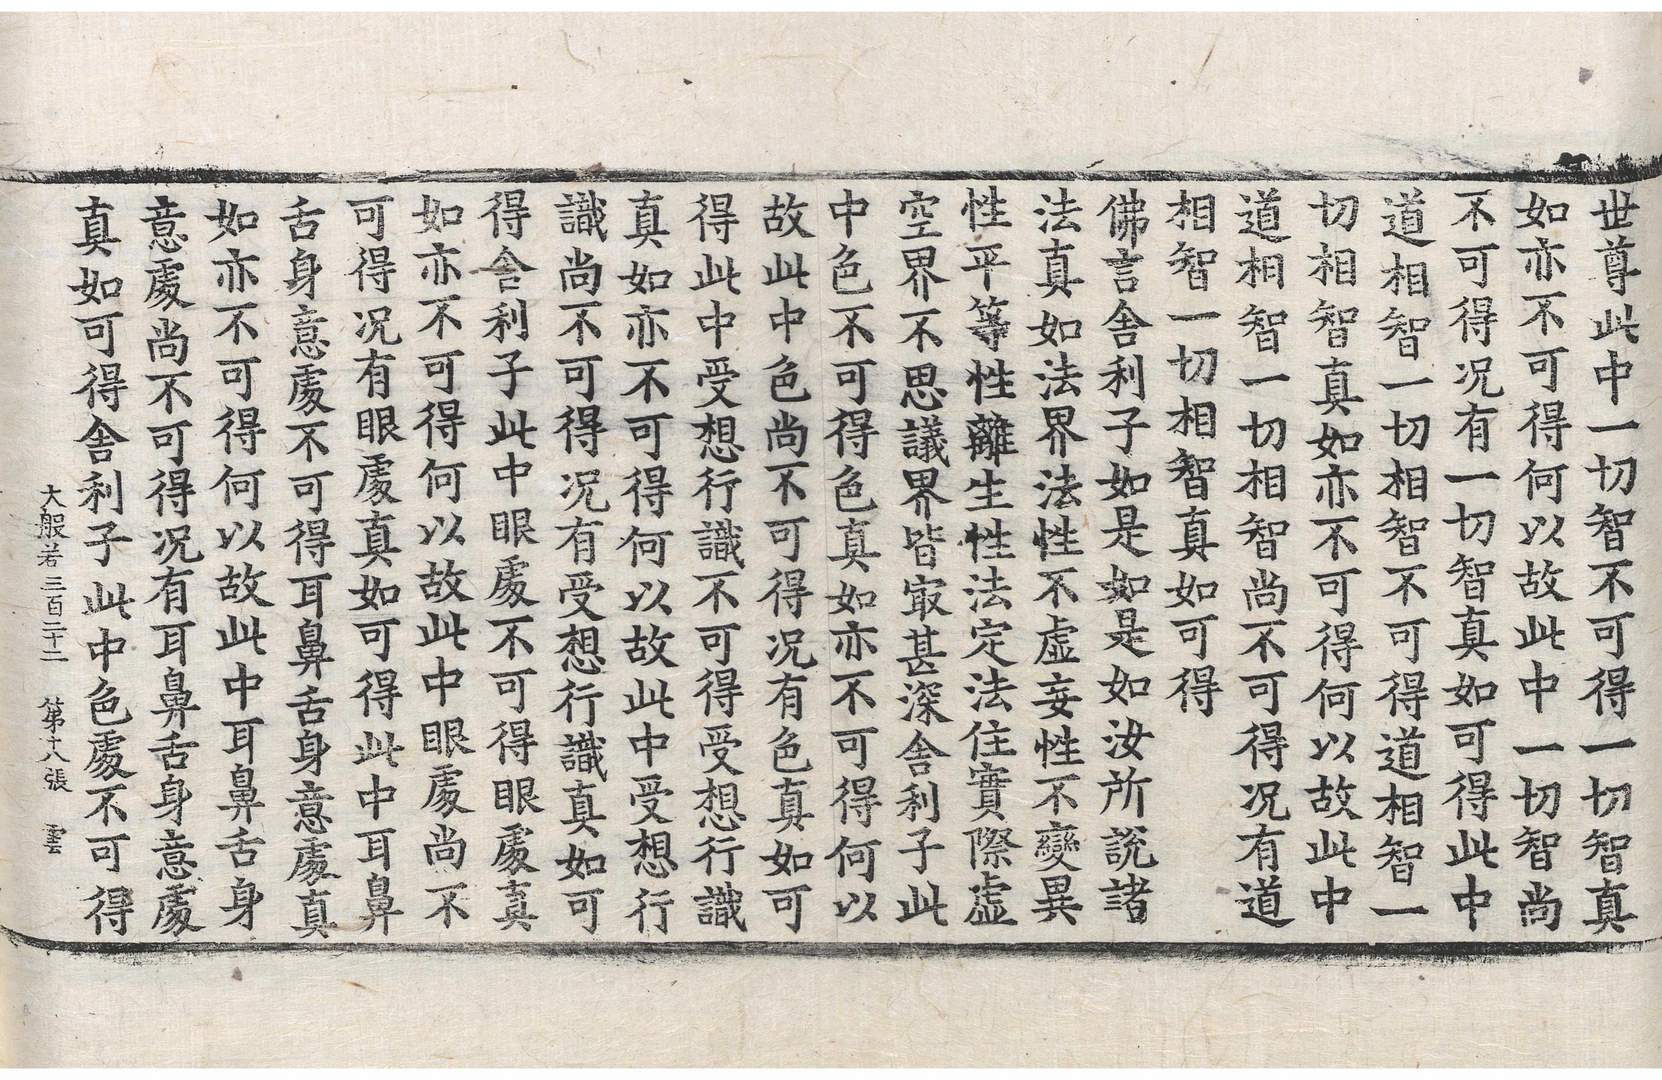 世尊此中一切智不可得一切智真
如亦不可得何以故此中一切智尚
不可得況有一切智真如可得此中
道相智一切相智不可得道相智一
切相智真如亦不可得何以故此中
道相智一切相智尚不可得況有道
相智一切相智真如可得
佛言舍利子如是如是如汝所說諸
法真如法界法性不虛妄性不變異
性平等性離生性法定法住實際虛
空界不思議界皆㝡甚深舍利子此
中色不可得色真如亦不可得何以
故此中色尚不可得況有色真如可
得此中受想行識不可得受想行識
真如亦不可得何以故此中受想行
識尚不可得況有受想行識真如可
得舍利子此中眼處不可得眼處真
如亦不可得何以故此中眼處尚不
可得況有眼處真如可得此中耳鼻
舌身意處不可得耳鼻舌身意處真
如亦不可得何以故此中耳鼻舌身
意處尚不可得況有耳鼻舌身意處
真如可得舍利子此中色處不可得
大般若三百二十二 第十八張 雲